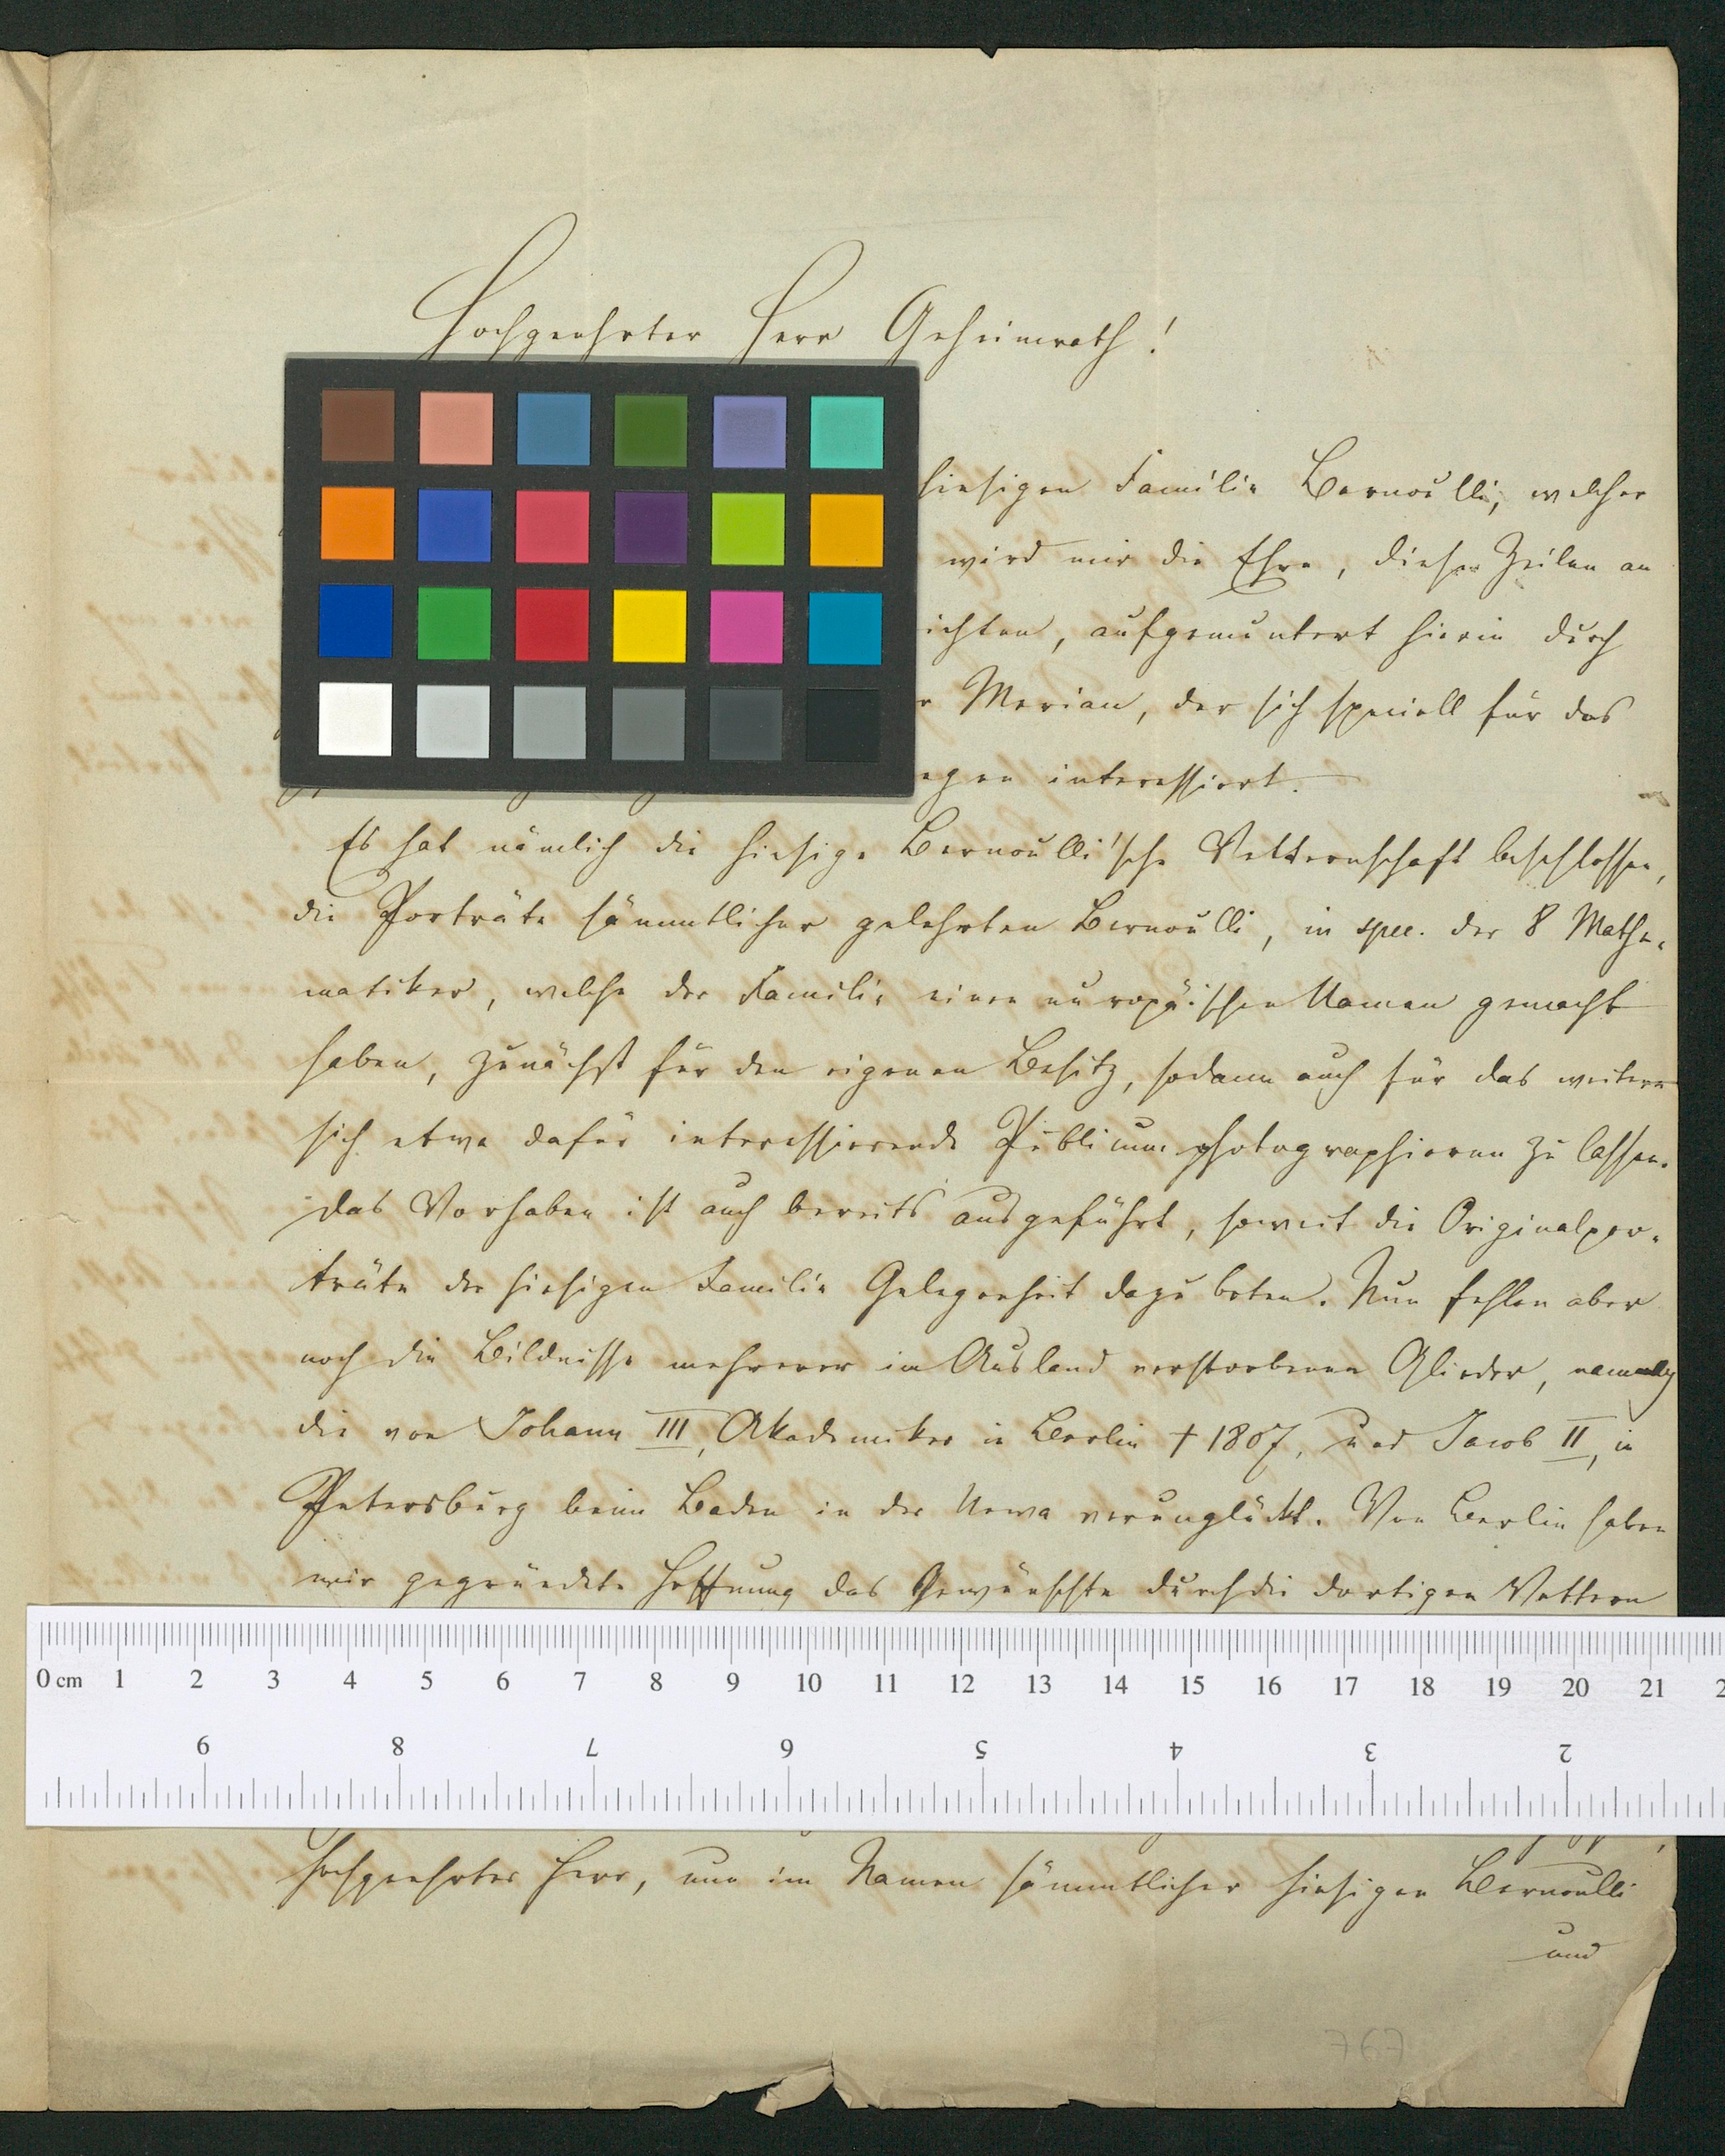 Hochgeehrter Herr Geheimrath!
hiesigen Familie Bernoulli, welcher
wird mir die Ehre, diese Zeilen an
ichten, aufgemuntert hierin durch
r Merian, der sich speciell für das
egen interessiert.
Es hat nämlich die hiesige Bernoulli'sche Vetternschaft beschlossen,
die Porträte sämmtlicher gelehrten Bernoulli, in spec. der 8 Mathe-
matiker, welche der Familie einen europäischen Namen gemacht
haben, zunächst für den eigenen Besitz, sodann auch für das weitere
sich etwa dafür interessierende Publicum photographieren zu lassen.
Das Vorhaben ist auch bereits ausgeführt, soweit die Originalpor-
träte der hiesigen Familie Gelegenheit dazu boten. Nun fehlen aber
noch die Bildnisse mehrerer im Ausland verstorbenen Glieder, namentlich
die von Johann III, Akademiker in Berlin † 1807, und Jacob II, in
Petersburg beim Baden in der Newa verunglückt. Von Berlin haben
wir gegründete Hoffnung das Gewünschte durch die dortigen Vettern
0 cm 1 2 3 4 5 6 7 8 9 10 11 12 13 14 15 16 17 18 19 20 21 2
9 8 7 6 5 4 3 2
hochgeehrter Herr, nun im Namen sämmtlicher hiesigen Bernoulli
und
767